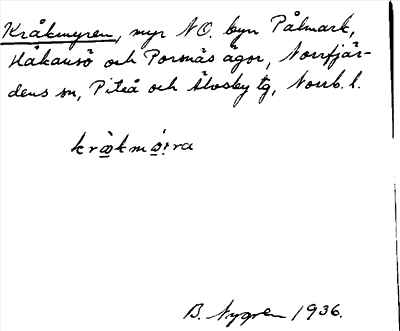 Kråkmyren, myr NO. byn Pålmark,
Håkansö och Porsnäs ägor, Norrfjär-
dens sn, Piteå och Älvsby tg, Norrb. l.
kråkmøra
B. Nygren 1936.